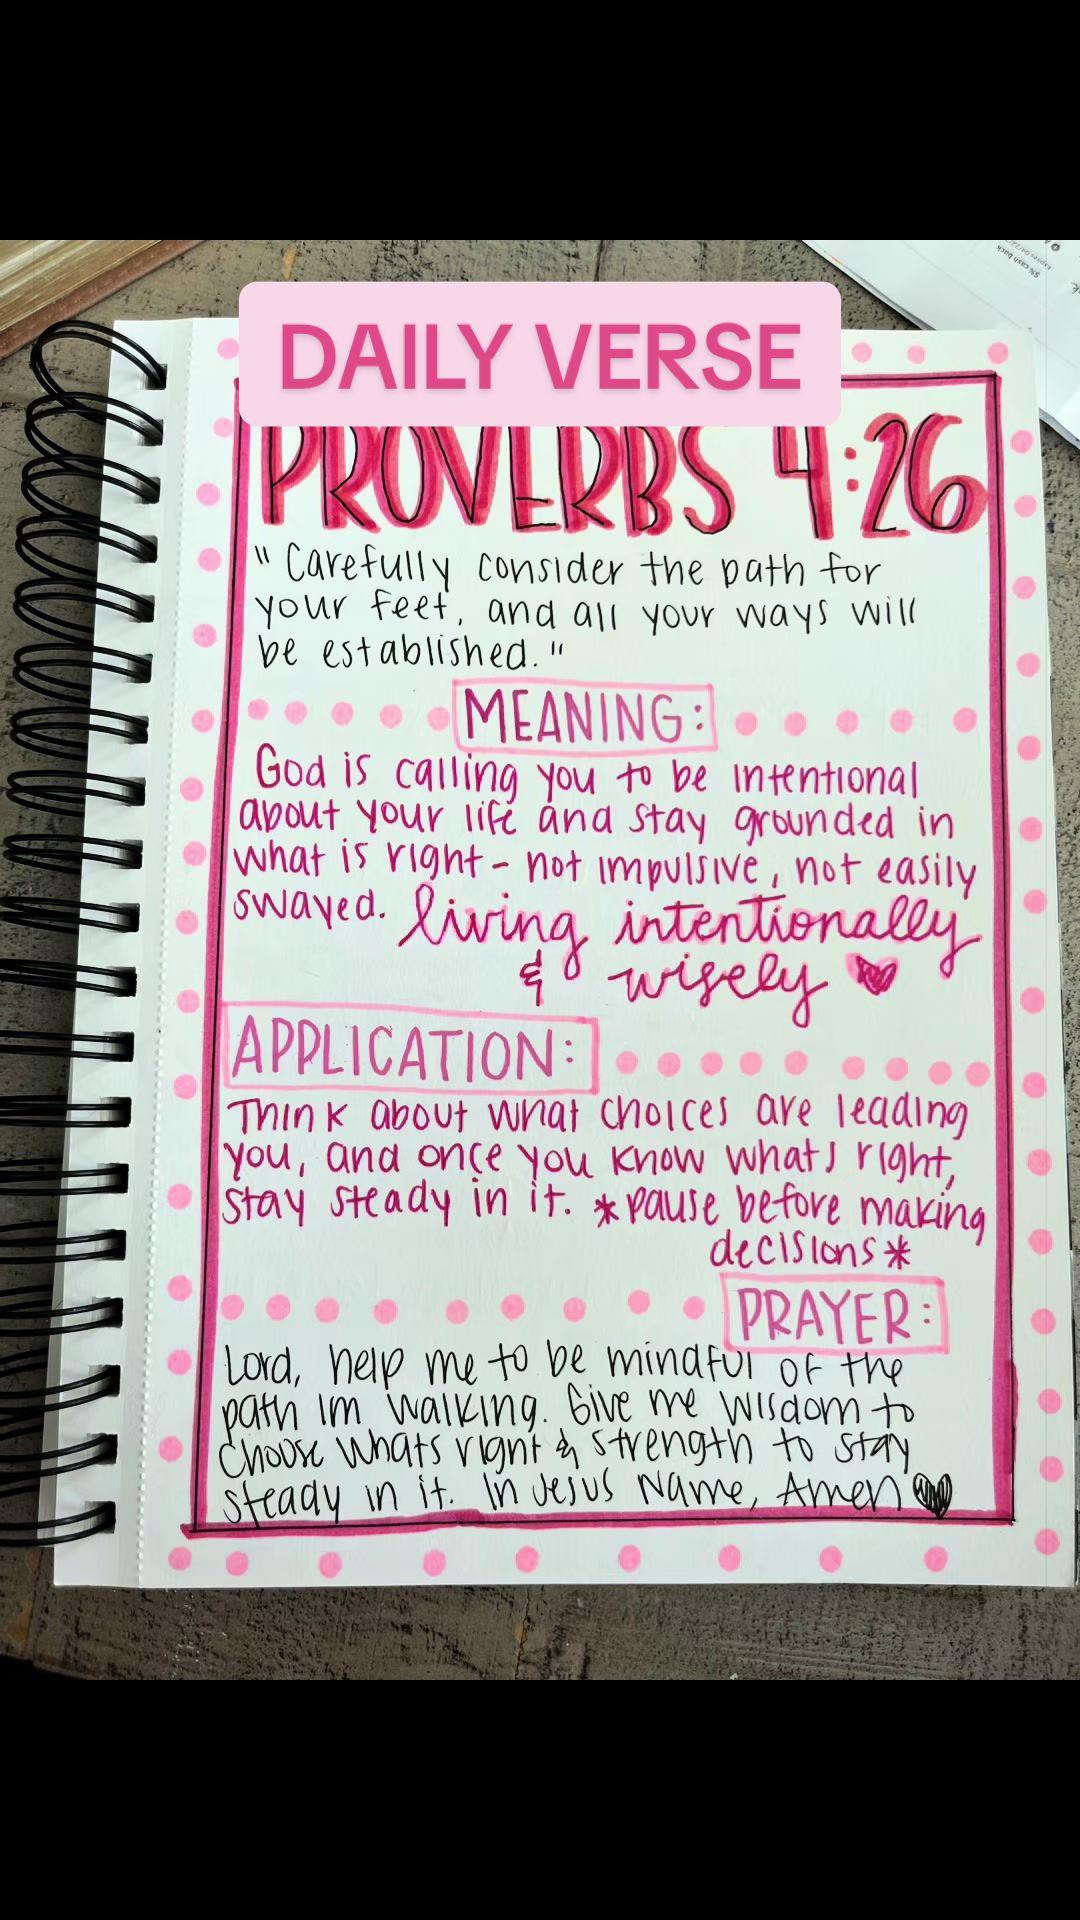 5% cash back
DAILY VERSE
PROVERBS 4:26
"Carefully consider the path for
your feet, and all your ways will
be established."
MEANING:
God is calling you to be intentional
about your life and stay grounded in
what is right - not impulsive, not easily
swayed. living intentionally
& wisely
APPLICATION:
Think about what choices are leading
you, and once you know whats right,
stay steady in it. *pause before making
decisions*
PRAYER:
Lord, help me to be mindful of the
path im walking. Give me wisdom to
choose whats right & strength to stay
steady in it. In Jesus Name, Amen